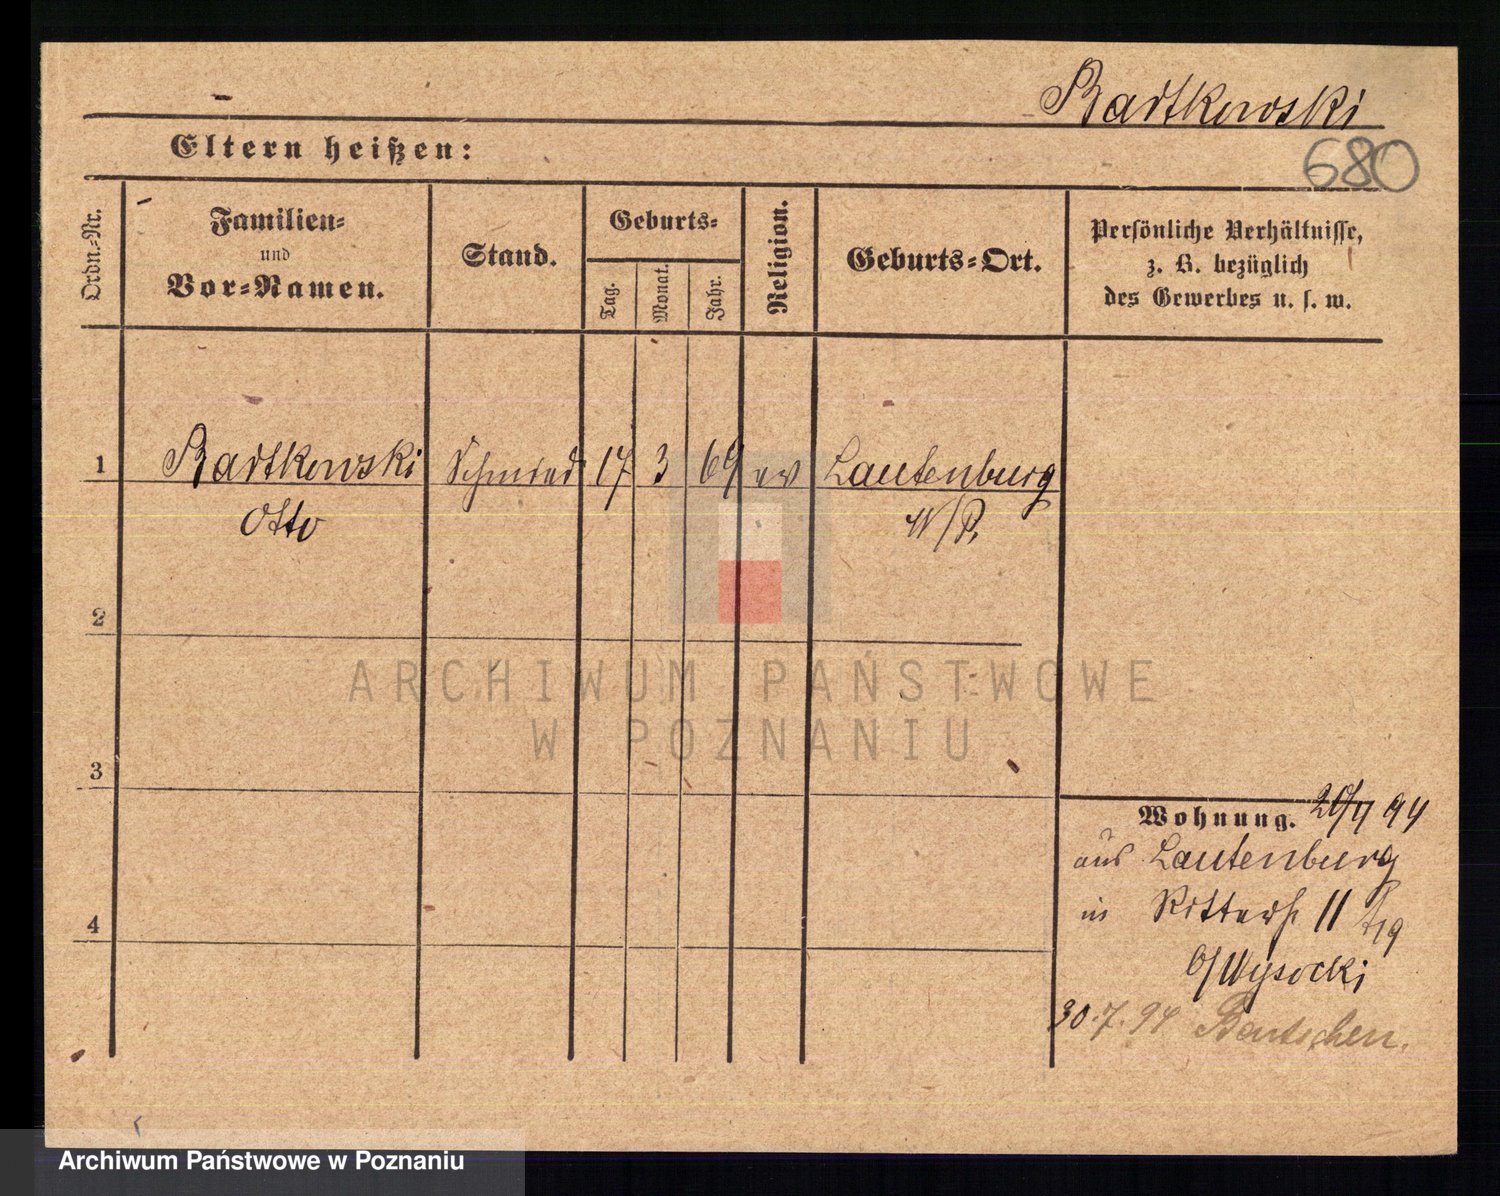 Bartkowski
680
Eltern heißen:
Ordn.-Nr.
Familien-
und
Vor-Namen.
Stand.
Geburts-
Tag.
Monat.
Jahr.
Religion.
Geburts-Ort.
Persönliche Verhältnisse,
z. B. bezüglich
des Gewerbes u. s. w.
1 Bartkowski Schmied 17 3 69 ev Lautenburg
Otto W/P.
2
3
4
Wohnung. 94
aus Lautenburg
in Ritterst 11
b/Wysocki
30.7.94 Bentschen.
ARCHIWUM PAŃSTWOWE
W POZNANIU
Archiwum Państwowe w Poznaniu